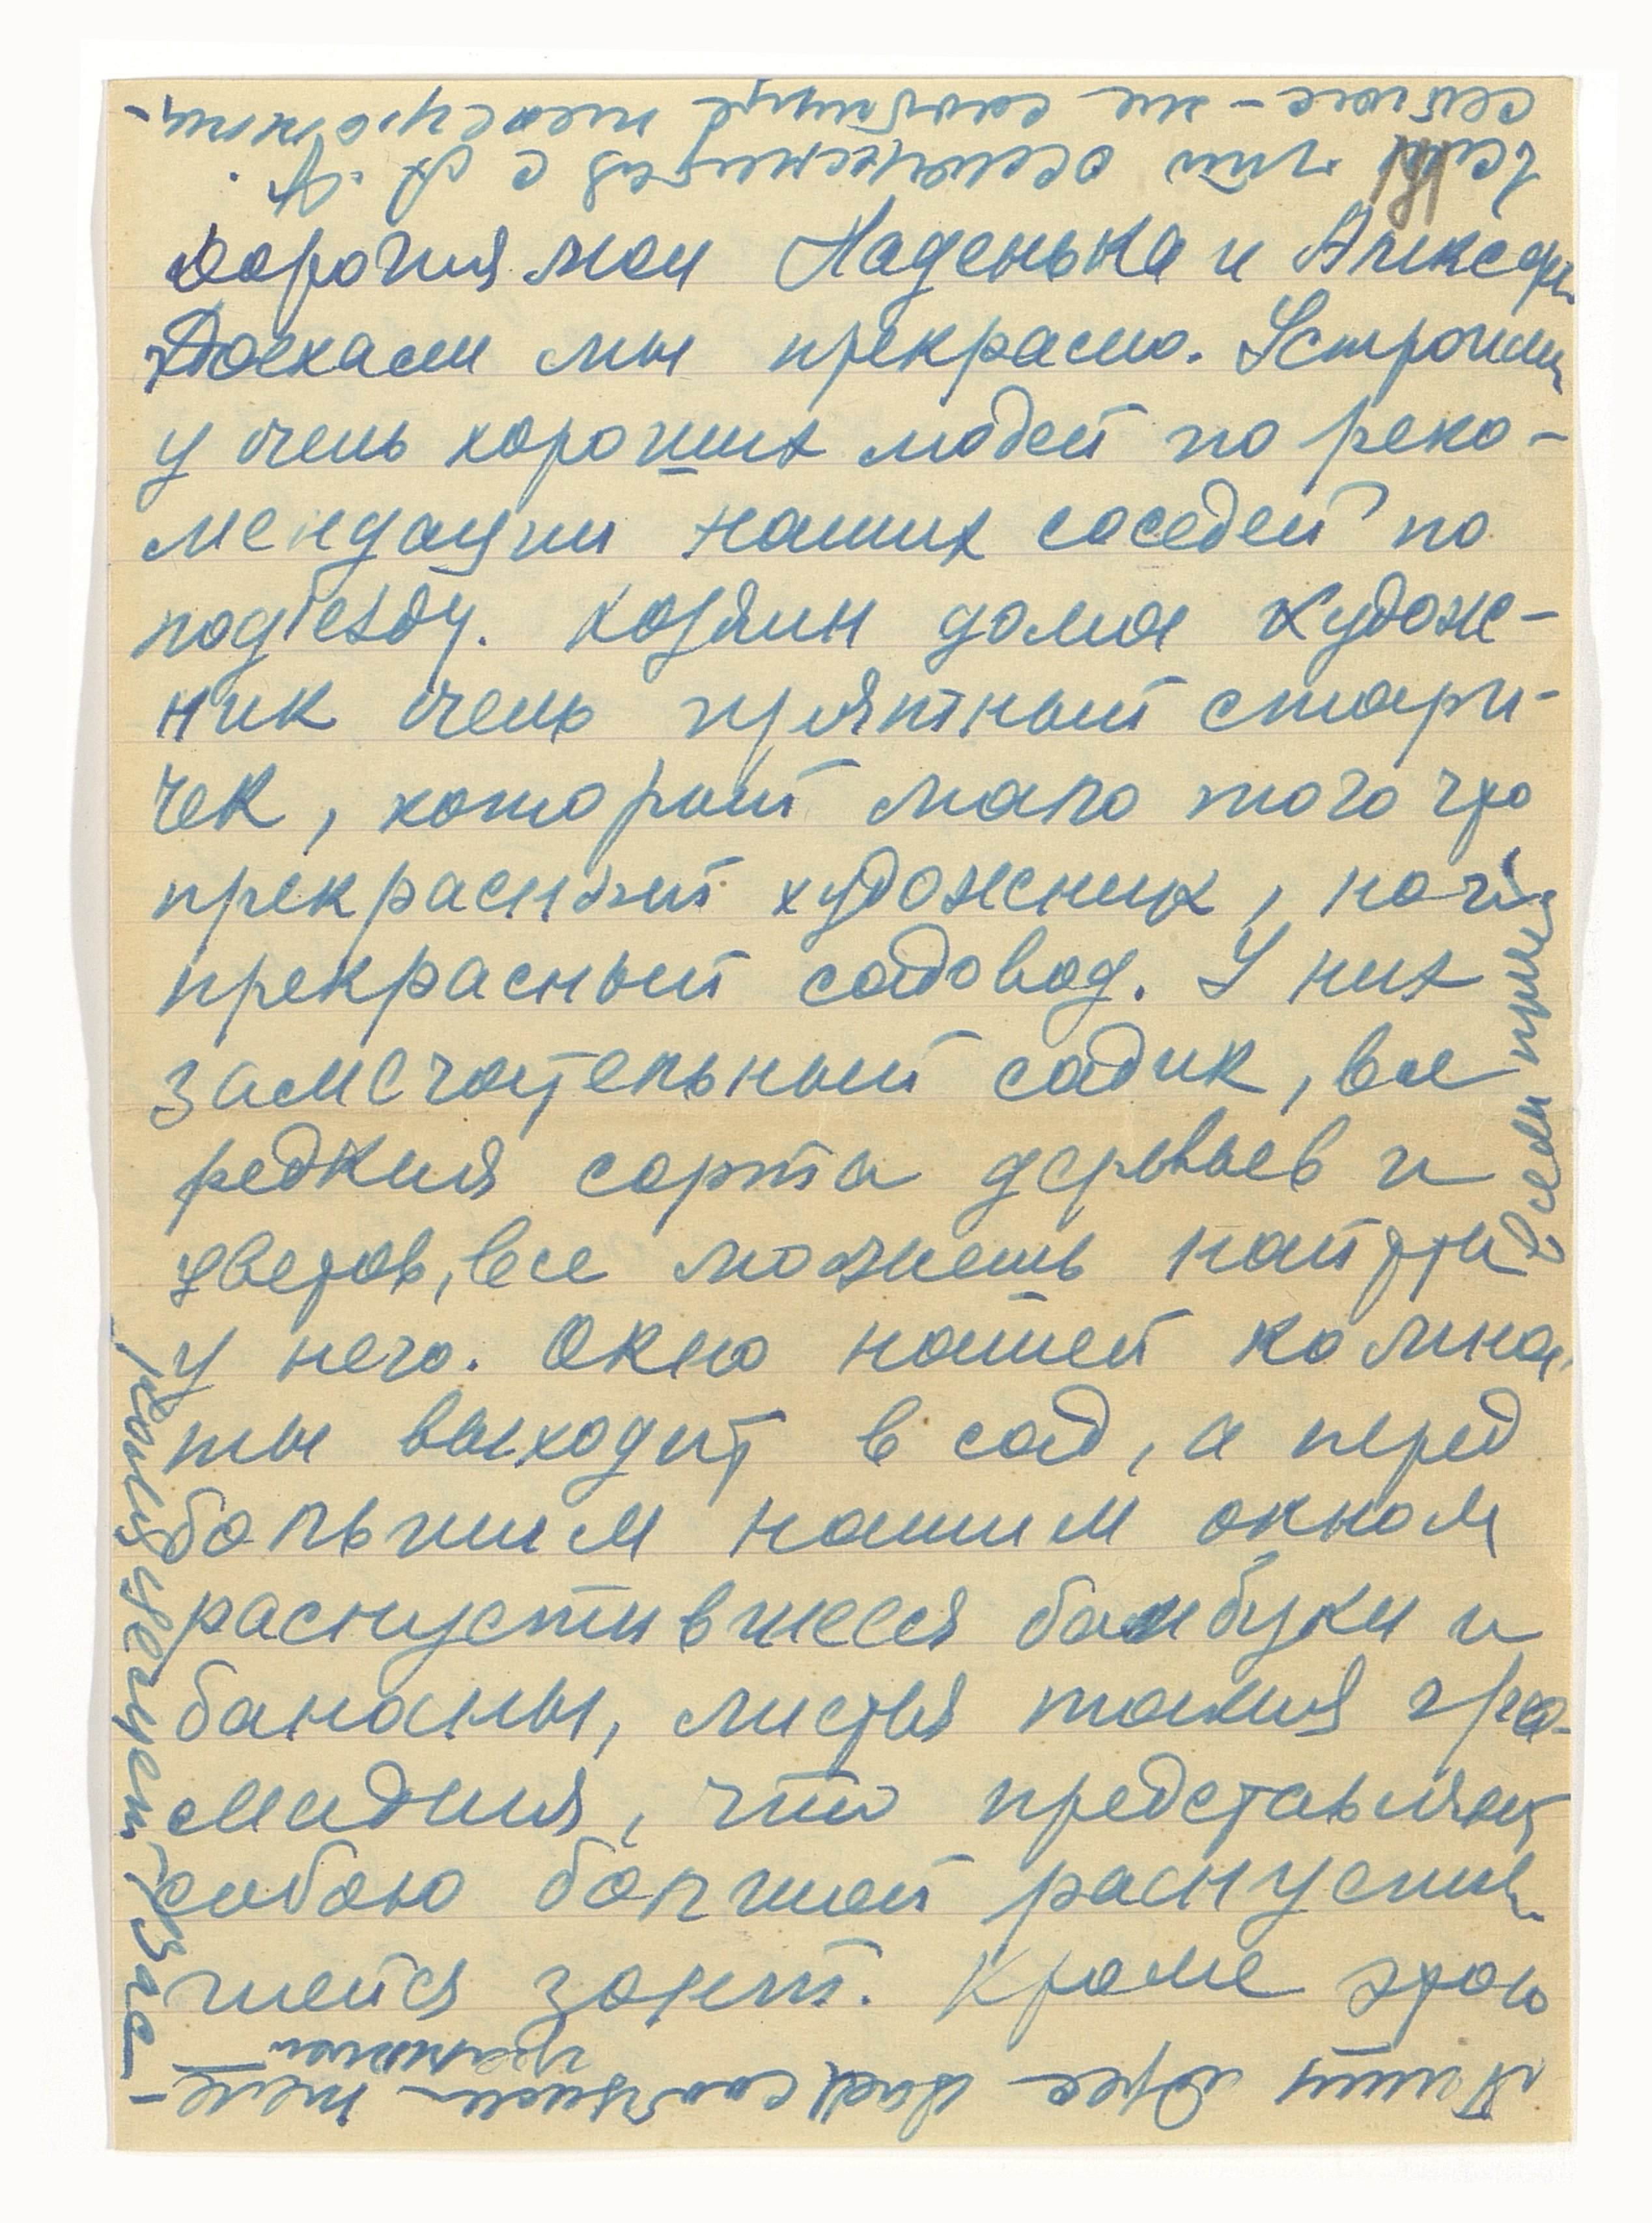 Дорогия мои Наденька и Алексей
Доехали мы прекрасно. Устроились
у очень хороших людей по реко-
мендации наших соседей по
подъезду. Хозяин дома худож-
ник очень приятный стари-
чек, который мало того что
прекрасный художник, но и
прекрасный садовод. У них
замечательный садик, все
редкия сорта деревьев и
цветов, все можешь найти
у него. Окно нашей комна-
ты выходит в сад, а перед
большим нашим окном
распустившиеся бамбуки и
бананы, листья такия гро-
мадныя, что представляют
собою большой распустив-
шейся зонт. Кроме этого
Всем привет
целует
сейчас-же сообщите телеграм
если что осложнится с